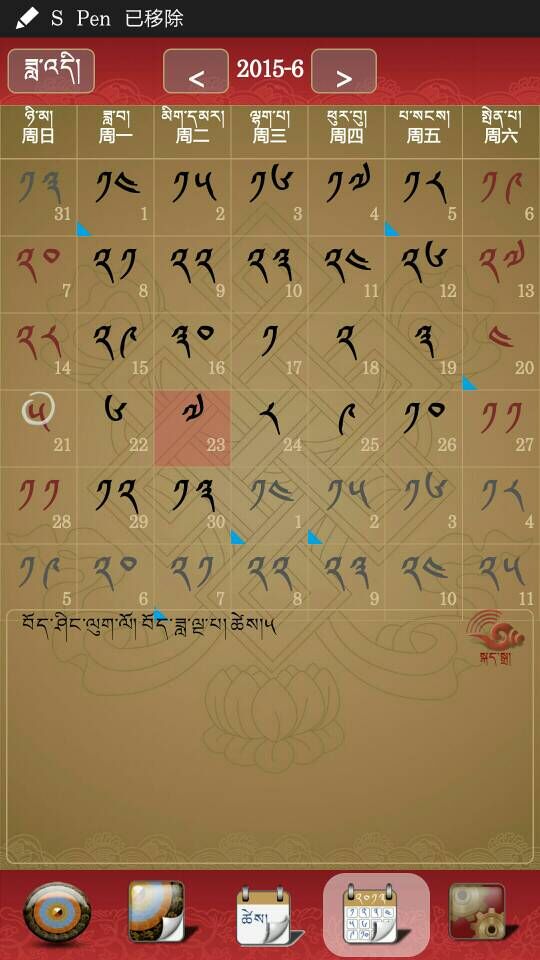 S Pen 已移除
ཟླ་འདི། < 2015-6 >
ཉི་མ། ཟླ་བ། མིག་དམར། ལྷག་པ། ཕུར་བུ། པ་སངས། སྤེན་པ།
周日 周一 周二 周三 周四 周五 周六
༡༣ ༡༤ ༡༥ ༡༦ ༡༧ ༡༨ ༡༩
31 1 2 3 4 5 6
༢༠ ༢༡ ༢༢ ༢༣ ༢༤ ༢༦ ༢༧
7 8 9 10 11 12 13
༢༨ ༢༩ ༣༠ ༡ ༢ ༣ ༤
14 15 16 17 18 19 20
༥ ༦ ༧ ༨ ༩ ༡༠ ༡༡
21 22 23 24 25 26 27
༡༡ ༡༢ ༡༣ ༡༤ ༡༥ ༡༦ ༡༨
28 29 30 1 2 3 4
༡༩ ༢༠ ༢༡ ༢༢ ༢༣ ༢༤ ༢༥
5 6 7 8 9 10 11
བོད་ཤིང་ལུག་ལོ། བོད་ཟླ་ལྔ་པ། ཚེས།༥
སྐད་སྒྲ།
ཚེས། ༢༠༡༢